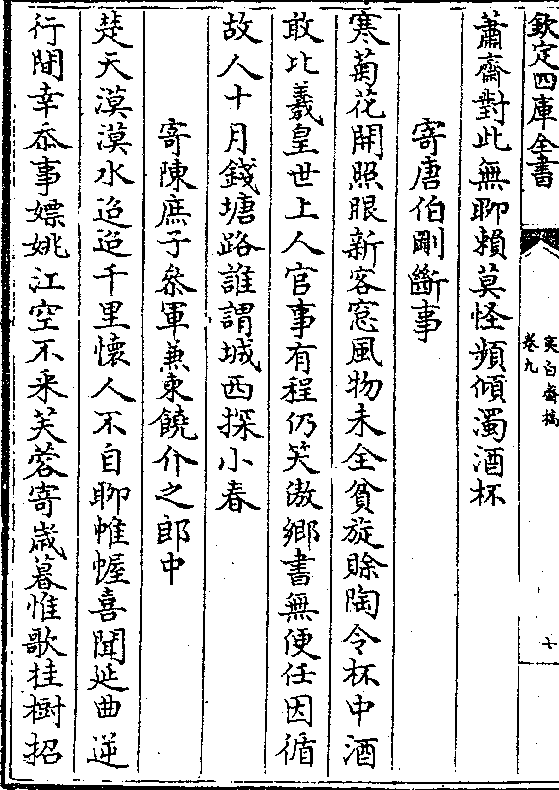 欽定四庫全書
夷白齋稿
卷九
十
蕭齋對此無聊賴莫怪頻傾濁酒杯
寄唐伯剛斷事
寒菊花開照眼新客窓風物未全貧旋賒陶令杯中酒
敢比羲皇世上人官事有程仍笑傲鄉書無便任因循
故人十月錢塘路誰謂城西探小春
寄陳庶子叅軍兼柬饒介之郎中
楚天漠漠水迢迢千里懷人不自聊帷幄喜聞延曲逆
行間幸忝事嫖姚江空不釆芙蓉寄歲暮惟歌桂樹招